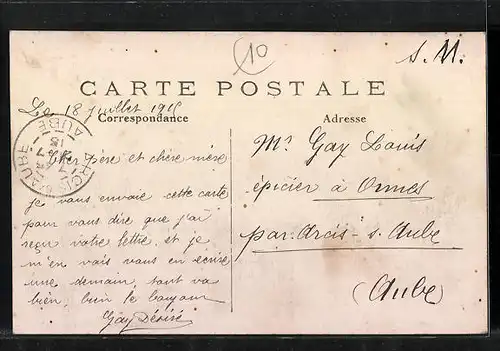 10
S. M.
CARTE POSTALE
Le 18 juillet 1915
Correspondance
Adresse
ARCIS S AUBE
AUBE
Cher père et chère mère
je vous envoie cette carte
pour vous dire que j'ai
reçu votre lettre, et je
m'en vais vous en ecrire
une demain, tout va
bien, bien le bonjour
Gay Désiré
Mr Gay Louis
épicier à Ormes
par Arcis s. Aube
(Aube)